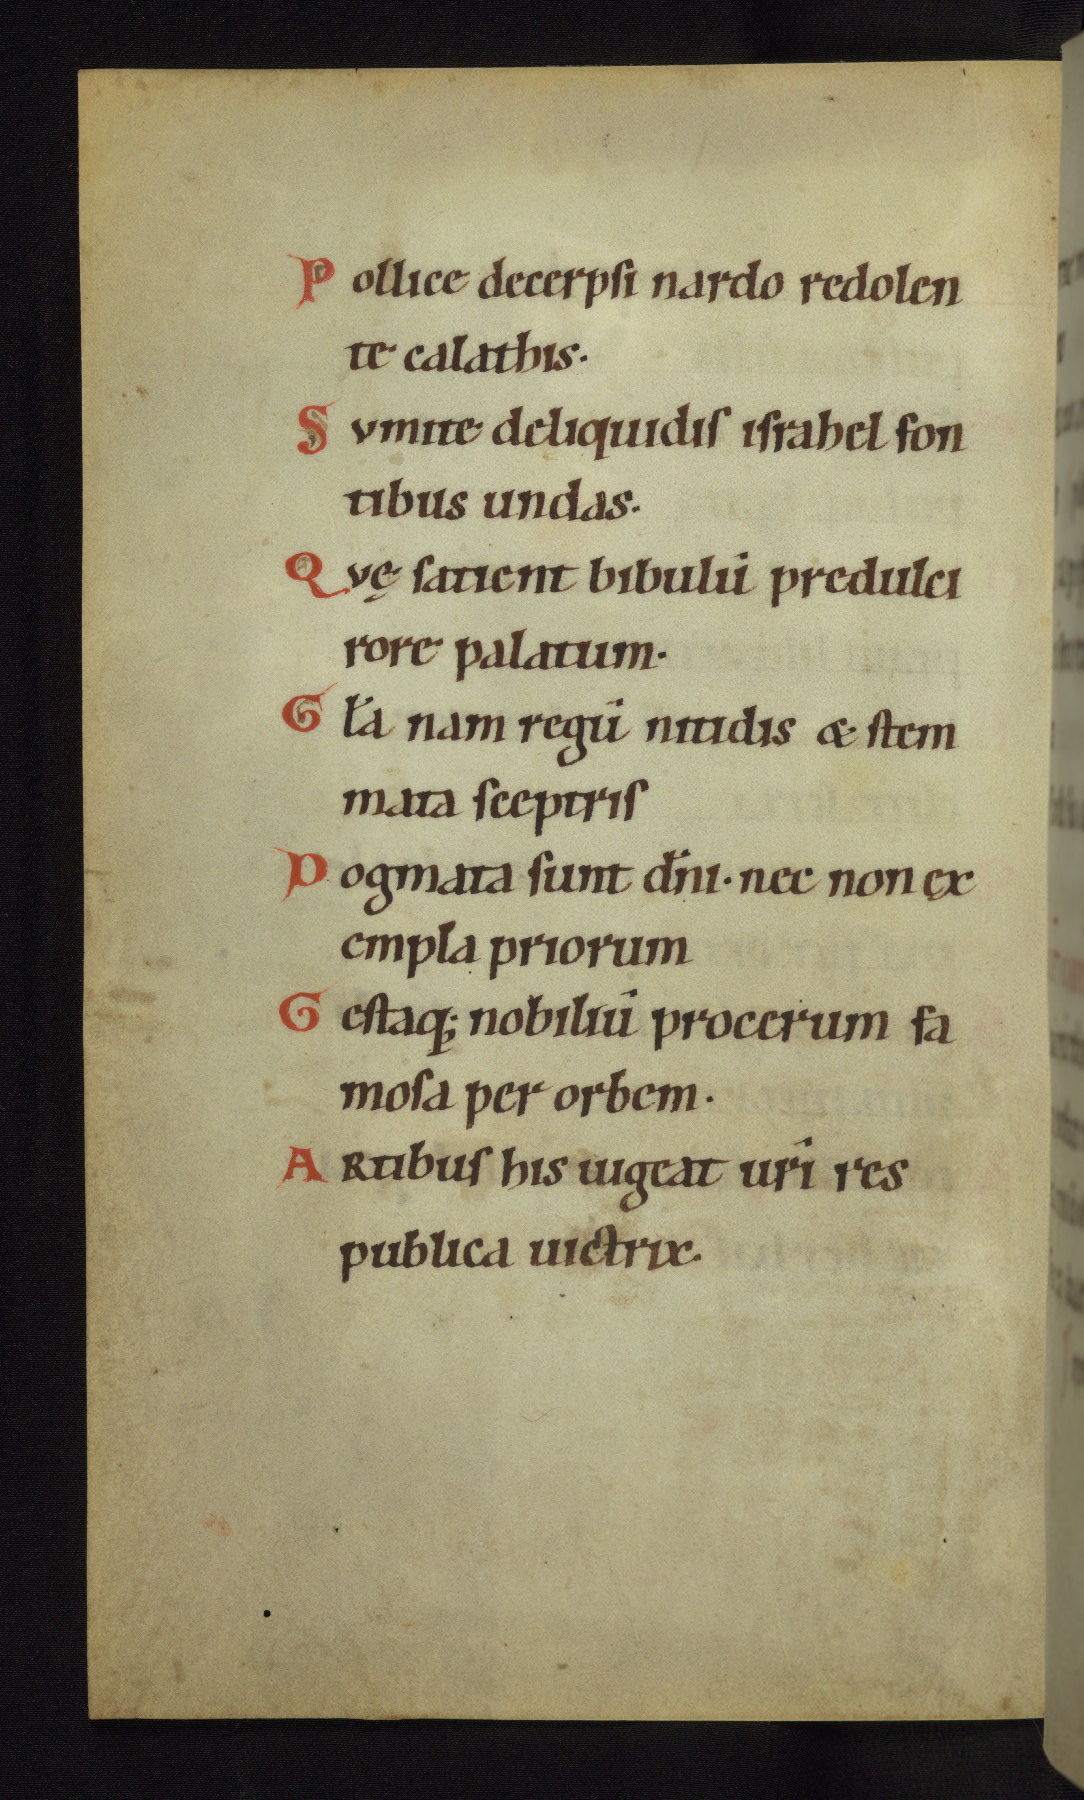 Pollice decerpsi nardo redolen
te calathis.
Svmite deliquidis israhel fon
tibus undas.
Qvę satient bibulū predulci
rore palatum.
Gl̄a nam regū nitidis & stem
mata sceptris
Dogmata sunt dn̄i. nec non ęx
empla priorum
Gestaq; nobiliū procerum fa
mosa per orbem.
ARtibus his uigeat ur̄i res
publica uictrix.